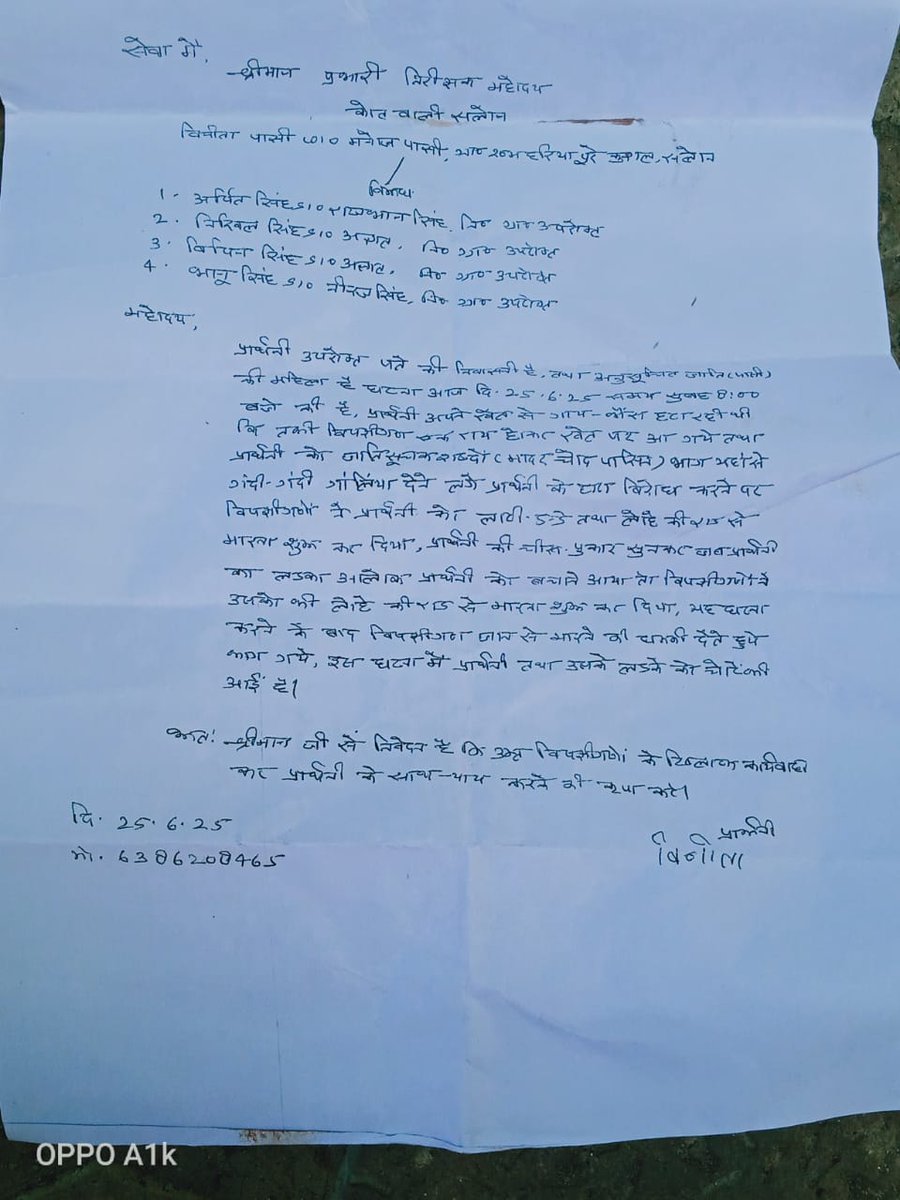 सेवा में,
श्रीमान प्रभारी निरीक्षक महोदय
कोतवाली सलोन
विनीता पासी w/o मनोज पासी, ग्राम पूरे सलोन
बिनाम
1. अर्पित सिंह s/o राजभान सिंह. नि० ग्रा० उपरोक्त
2. निखिल सिंह s/o अज्ञात, नि० ग्रा० उपरोक्त
3. विपिन सिंह s/o अज्ञात, नि० ग्रा० उपरोक्त
4. भानू सिंह s/o नीरज सिंह, नि० ग्रा० उपरोक्त
महोदय,
प्रार्थिनी उपरोक्त पते की निवासनी है, तथा अनुसूचित जाति (पासी)
की महिला है घटना आज दि. 25.6.25 समय सुबह 8:00
बजे की है, प्रार्थिनी अपने खेत से गाय-भैंस हटा रही थी
कि तभी विपक्षीगण एक राय होकर खेत पर आ गये तथा
प्रार्थिनी को जातिसूचक शब्दों (मादर चोद पासिन) भाग यहां से
गंदी-गंदी गालियां देने लगे प्रार्थिनी के द्वारा विरोध करने पर
विपक्षीगणों ने प्रार्थिनी को लाठी-डंडे तथा लोहे की राड से
मारना शुरू कर दिया, प्रार्थिनी की चीख पुकार सुनकर जब प्रार्थिनी
का लडका आलोक प्रार्थिनी को बचाने आया तो विपक्षीगणों ने
उसको भी लोहे की राड से मारना शुरू कर दिया, यह घटना
करने के बाद विपक्षीगण जान से मारने की धमकी देते हुये
भाग गये, इस घटना में प्रार्थिनी तथा उसके लडके को चोटें भी
आई है।
अतः श्रीमान जी से निवेदन है कि उक्त विपक्षीगणों के खिलाफ कार्यवाही
कर प्रार्थिनी के साथ न्याय करने की कृपा करें।
दि. 25.6.25
प्रार्थिनी
मो. 6386208465
विनीता
OPPO A1k